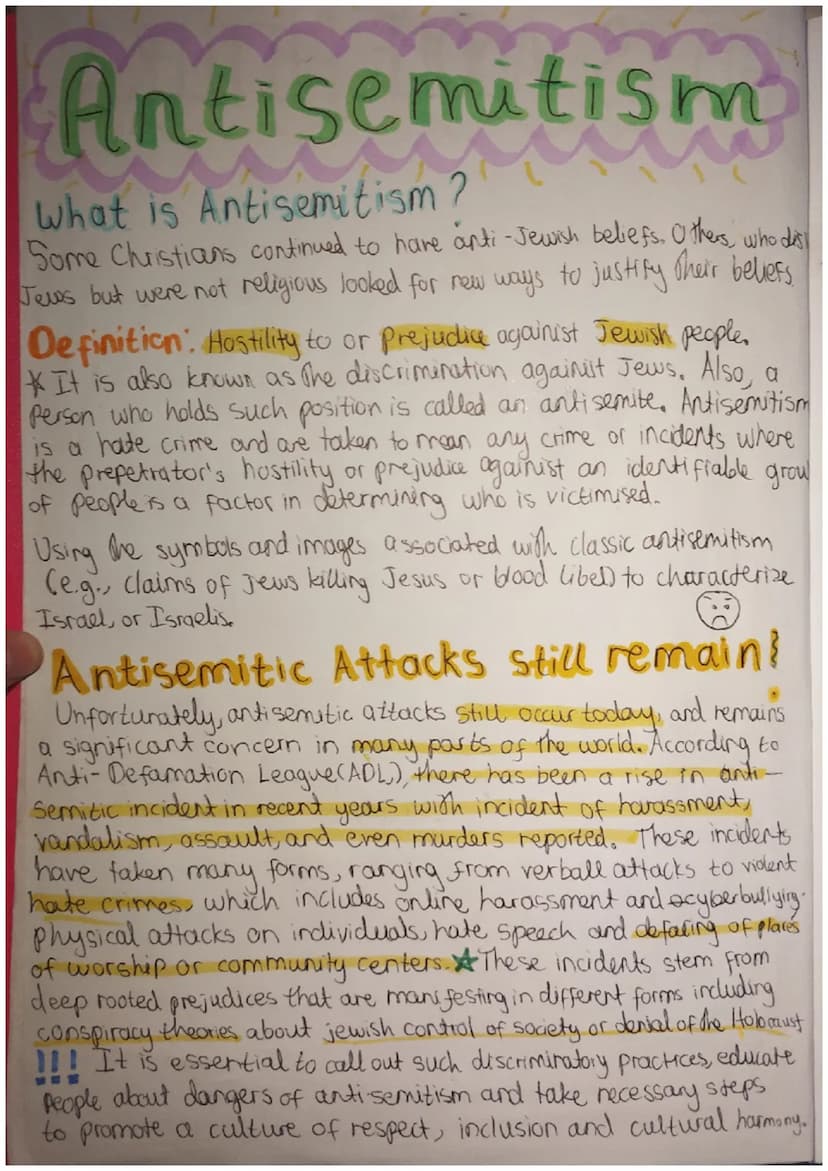 Antisemitism
What is Antisemitism?
Some Christians continued to have anti-Jewish beliefs. Others, who
Jews but were not religious looked for new ways to justify their beliefs.
Definition: Hostility to or Prejudice againist Jewish people.
* It is also known as the discrimination againist Jews. Also, a
person who holds such position is called an antisemite. Antisemitism
is a hate crime and are taken to mean any crime or incidents where
the prepetrator's hostility or prejudice againist an identifiable grou
of people is a factor in determining who is victimised.
Using the symbols and images associated with classic antisemitism
(e.g., claims of Jews killing Jesus or blood libel) to characterize
Israel, or Israelis.
Antisemitic Attacks still remain!
Unfortunately, antisemitic attacks still occur today, and remains
a significant concern in many parts of the world. According to
Anti-Defamation League(ADL), there has been a rise in anti-
semitic incident in recent years with incident of harassment,
vandalism, assault, and even murders reported. These incidents
have taken many forms, ranging from verball attacks to violent
hate crimes, which includes online harassment and cyberbullying.
physical attacks on individuals, hate speech and defacing of places
of worship or community centers. ★ These incidents stem from
deep rooted prejudices that are manifesting in different forms including
conspiracy theories about jewish control of society or denial of the Holocaust
!!! It is essential to call out such discriminatory practices, educate
people about dangers of anti-semitism and take necessary steps
to promote a culture of respect, inclusion and cultural harmony.